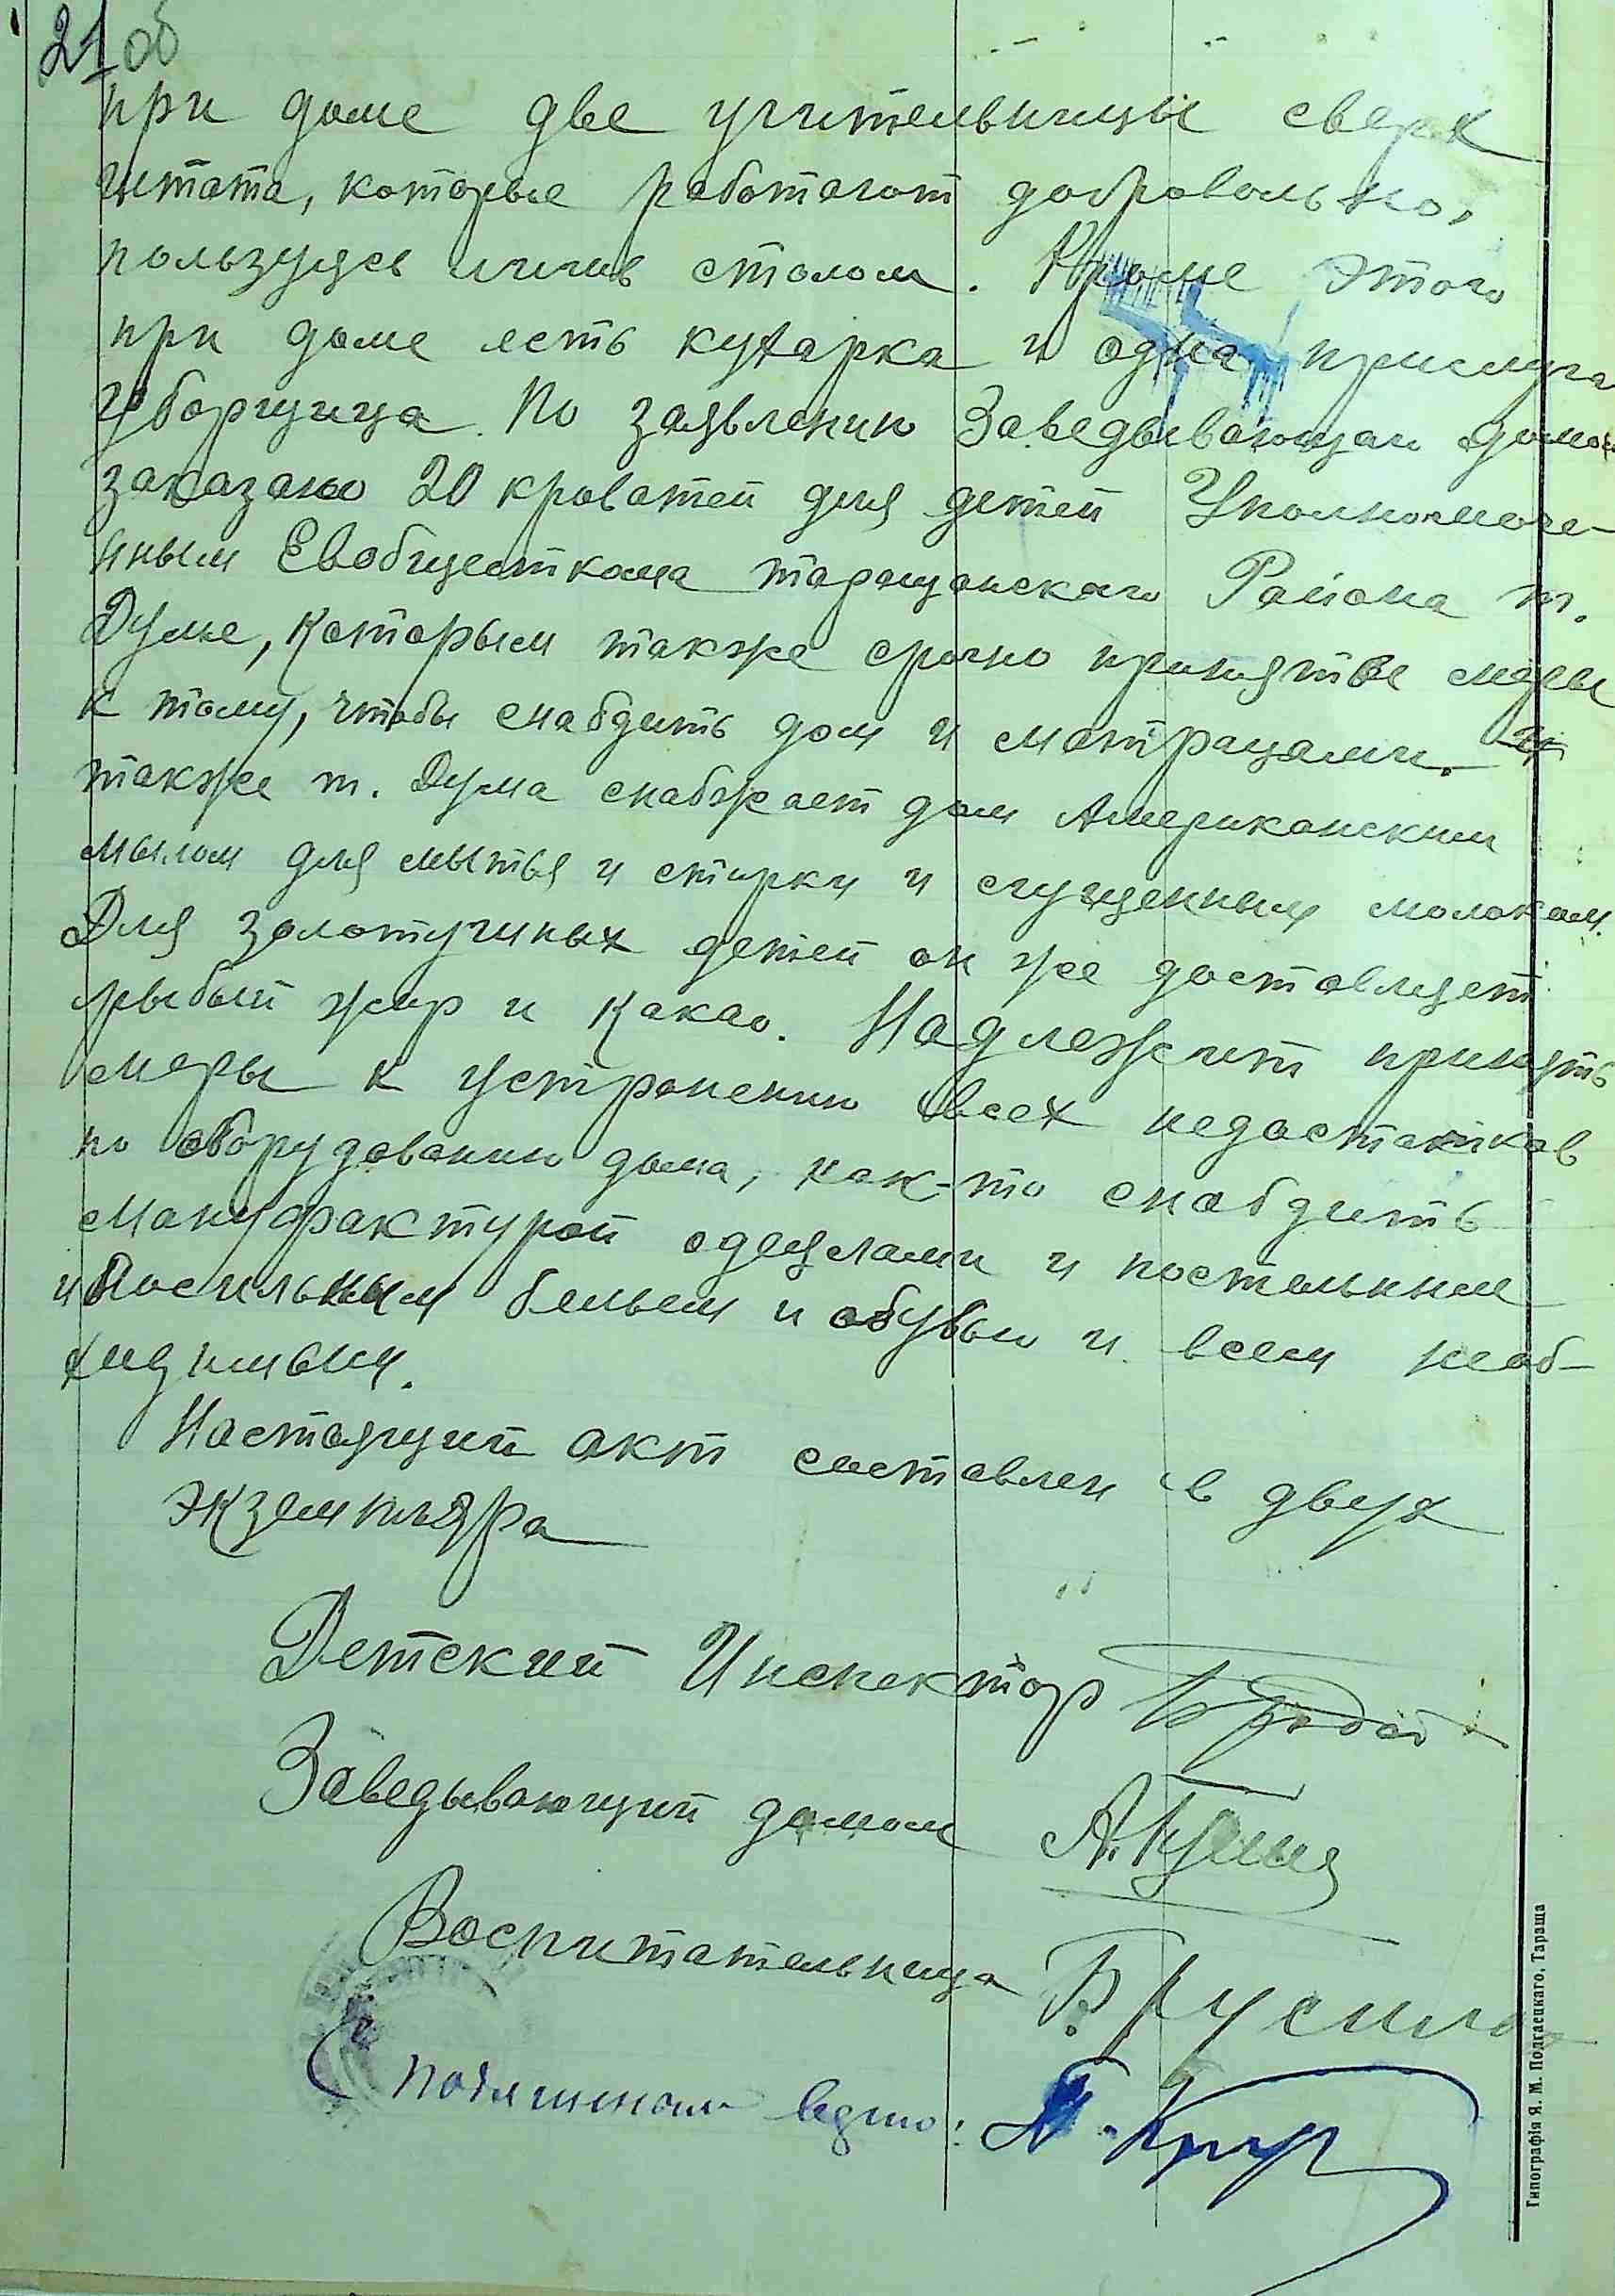 21 об
при доме две учительницы сверх
штата, которые работают добровольно,
пользуясь лишь столом. Кроме этого
при доме есть кухарка и одна прислуга
уборщица. По заявлению Заведывающаго домом
заказано 20 кроватей для детей Уполномоче-
нным Евобщесткома таращанского Района т.
Думе, которым также срочно приняты меры
к тому, чтобы снабдить дом и матрацами.
также т. Дума снабжает дом Американским
мылом для мытья и стирки и сгущенным молоком.
Для золотушных детей он же доставляет
рыбый жир и какао. Надлежит принять
меры к устранению всех недостатков
по оборудованию дома, как-то снабдить
мануфактурой одеялами и постельным
и носильным бельем и обувью и всем необ-
ходимым.
Настоящий акт составлен в двух
экземпляра
Детский Инспектор
Заведывающий домом
Воспитательница
С подлинным верно:
Типографія Я. М. Подгаецкаго, Тараща